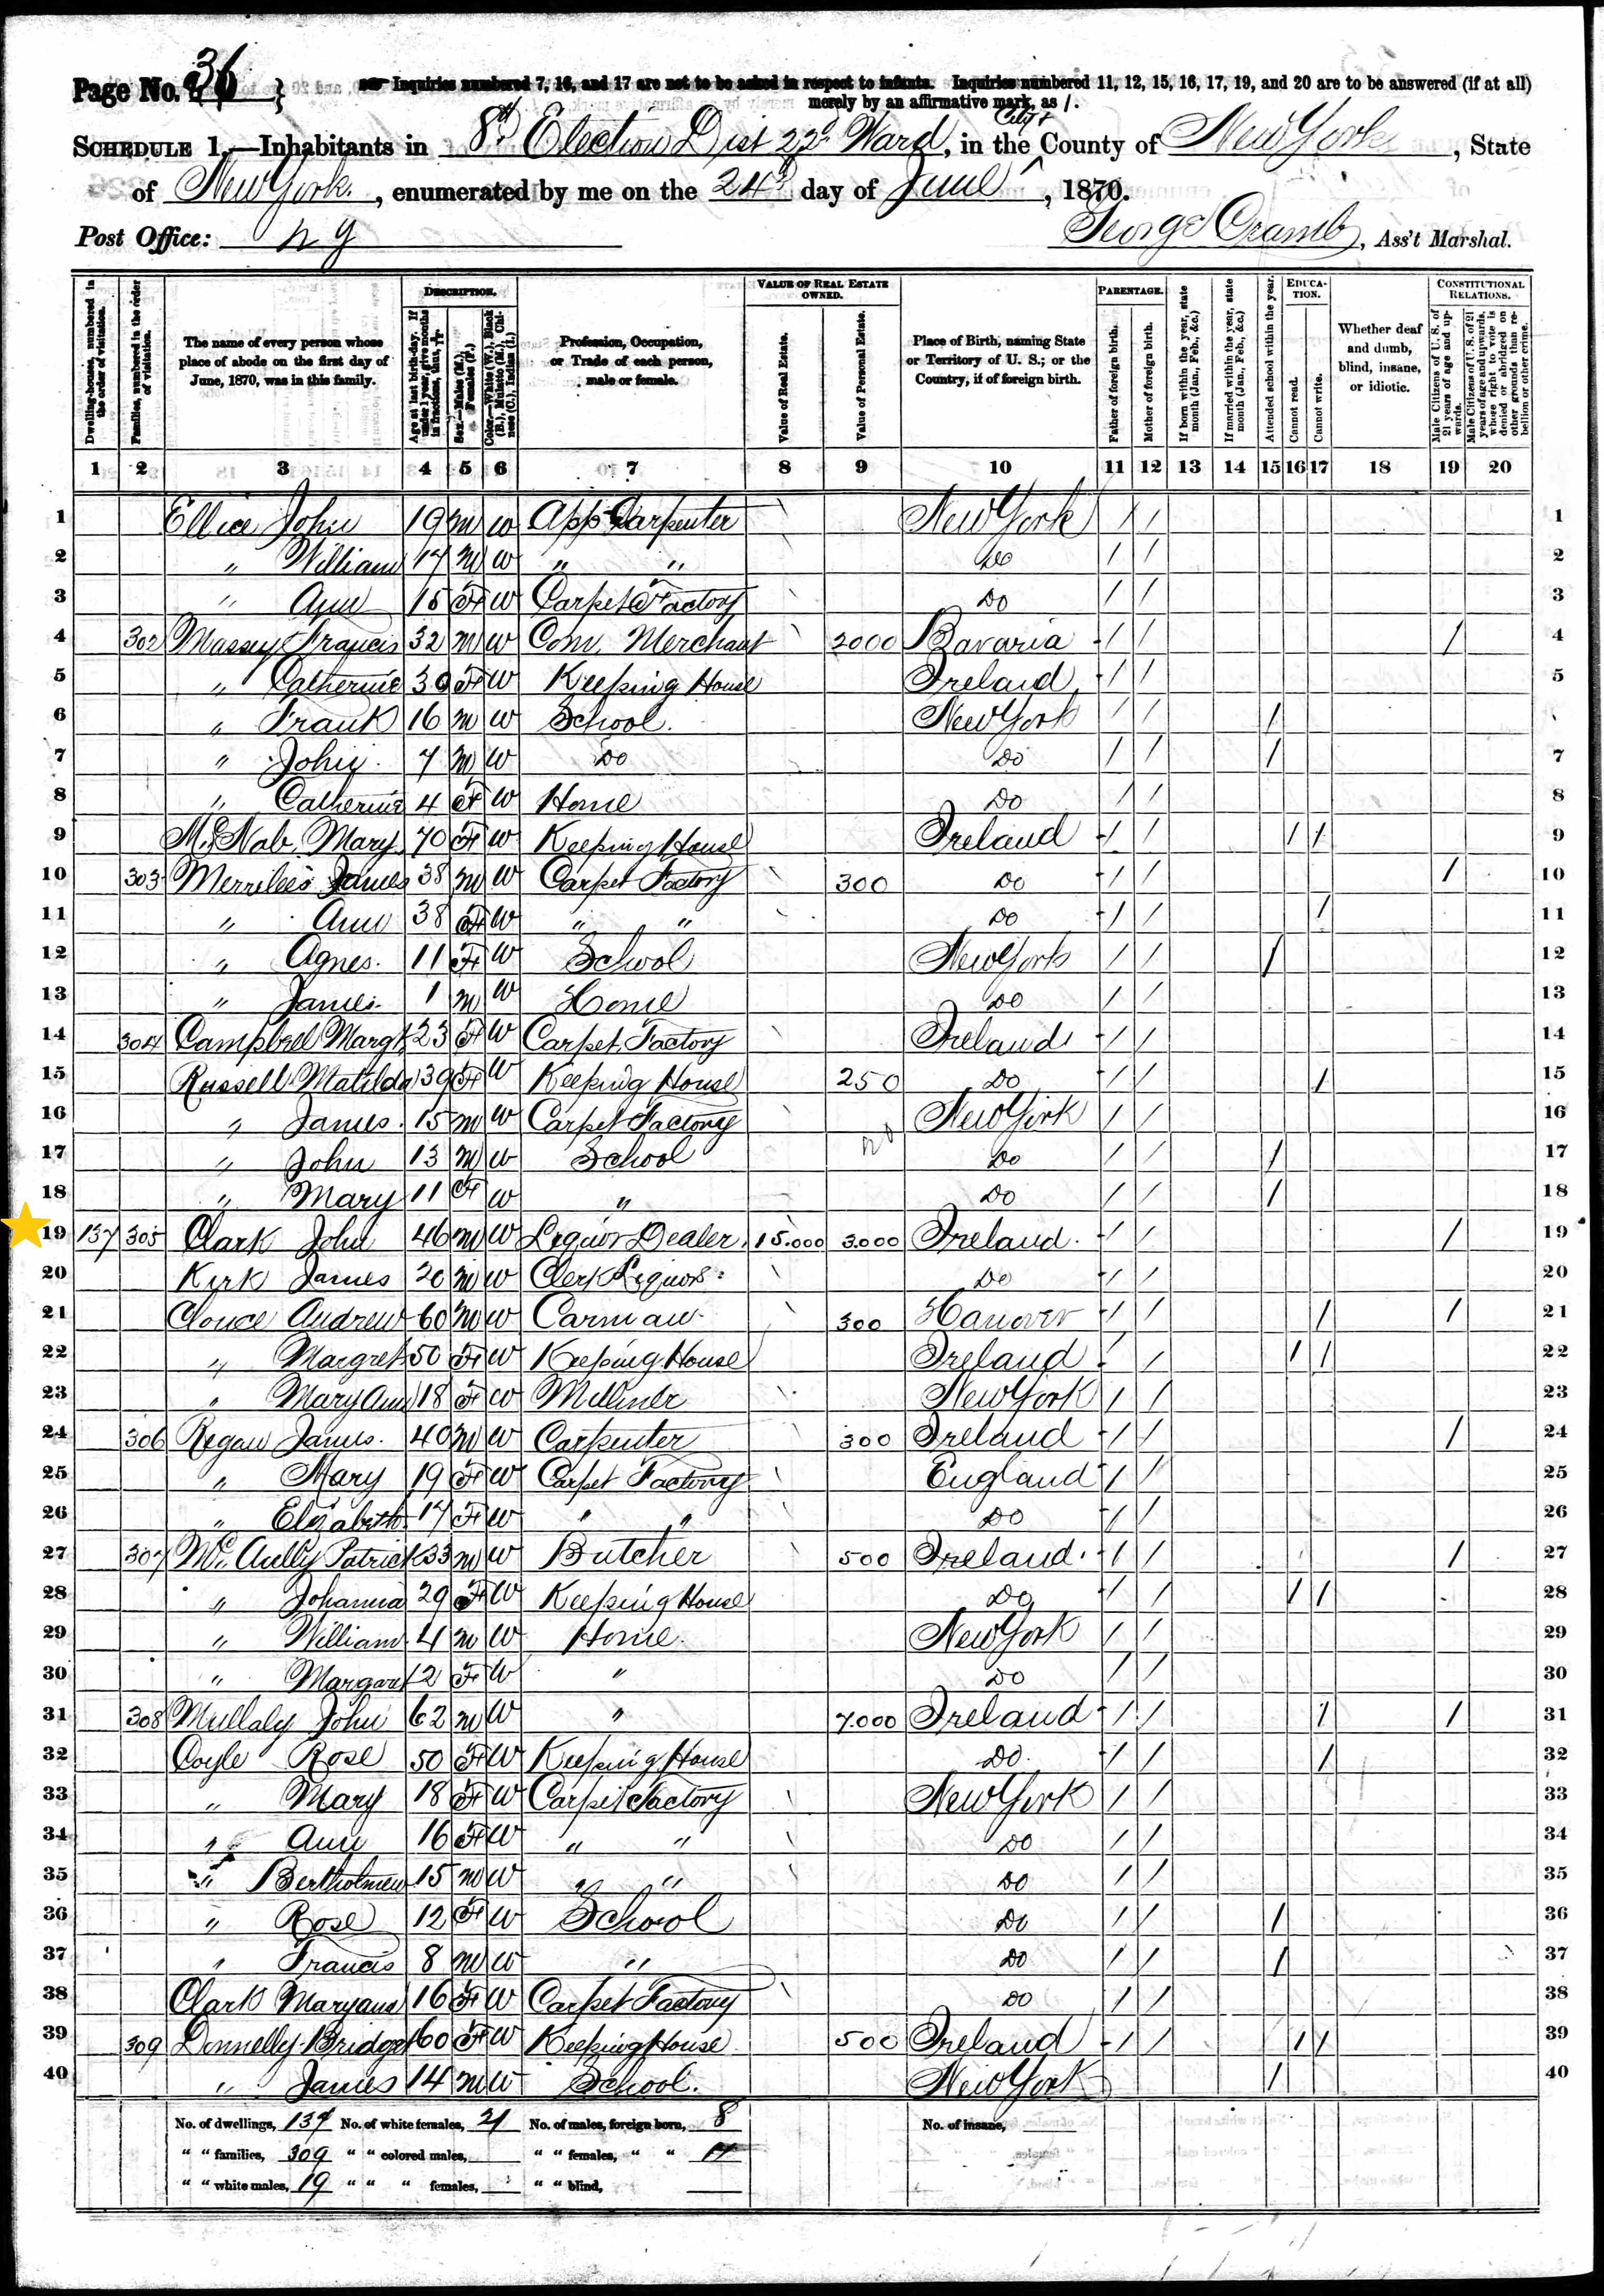 Page No. 36 } Inquiries numbered 7, 16, and 17 are not to be asked in respect to infants. Inquiries numbered 11, 12, 15, 16, 17, 19, and 20 are to be answered (if at all)
merely by an affirmative mark, as /.
City &
SCHEDULE 1.—Inhabitants in 8th Election Dist 22d Ward, in the County of New York, State
of New York, enumerated by me on the 24th day of June, 1870.
Post Office: N Y George Cramb, Ass't Marshal.
Dwelling-houses, numbered in the order of visitation.
Families, numbered in the order of visitation.
The name of every person whose place of abode on the first day of June, 1870, was in this family.
DESCRIPTION.
Age at last birth-day. If under 1 year, give months in fractions, thus, 3/12.
Sex.—Males (M.), Females (F.)
Color.—White (W.), Black (B.), Mulatto (M.), Chinese (C.), Indian (I.)
Profession, Occupation, or Trade of each person, male or female.
VALUE OF REAL ESTATE OWNED.
Value of Real Estate.
Value of Personal Estate.
Place of Birth, naming State or Territory of U. S.; or the Country, if of foreign birth.
PARENTAGE.
Father of foreign birth.
Mother of foreign birth.
If born within the year, state month (Jan., Feb., &c.)
If married within the year, state month (Jan., Feb., &c.)
Attended school within the year.
EDUCATION.
Cannot read.
Cannot write.
Whether deaf and dumb, blind, insane, or idiotic.
CONSTITUTIONAL RELATIONS.
Male Citizens of U. S. of 21 years of age and upwards.
Male Citizens of U. S. of 21 years of age and upwards, whose right to vote is denied or abridged on other grounds than rebellion or other crime.
1 2 3 4 5 6 7 8 9 10 11 12 13 14 15 16 17 18 19 20
1 Ellice John 19 M W App Carpenter New York / / 1
2 " William 17 M W " " Do / / 2
3 " Ann 15 F W Carpet Factory Do / / 3
4 302 Massey Francis 32 M W Com. Merchant 2000 Bavaria / / / 4
5 " Catherine 30 F W Keeping House Ireland / / 5
6 " Frank 16 M W School New York / / /
7 " John 7 M W Do Do / / / 7
8 " Catherine 4 F W Home Do / / 8
9 McNab, Mary 70 F W Keeping House Ireland / / / / 9
10 303 Merrilees James 38 M W Carpet Factory 300 Do / / / 10
11 " Ann 38 F W " " Do / / / 11
12 " Agnes 11 F W School New York / / / 12
13 " James 1 M W Home Do / / 13
14 304 Campbell Margt 23 F W Carpet Factory Ireland / / 14
15 Russell Matilda 39 F W Keeping House 250 Do / / / 15
16 " James 15 M W Carpet Factory New York / / 16
17 " John 13 M W School Do / / / 17
18 " Mary 11 F W " Do / / / 18
19 137 305 Clark John 46 M W Liquor Dealer 15.000 3.000 Ireland / / / 19
20 Kirk James 20 M W Clerk Liquors Do / / 20
21 Clouce Andrew 60 M W Carman 300 Hanover / / / / 21
22 " Margret 50 F W Keeping House Ireland / / / / 22
23 " Mary Ann 18 F W Milliner New York / / 23
24 306 Regan James 40 M W Carpenter 300 Ireland / / / 24
25 " Mary 19 F W Carpet Factory England / / 25
26 " Elizabeth 17 F W " " Do / / 26
27 307 McAully Patrick 33 M W Butcher 500 Ireland / / / 27
28 " Johanna 29 F W Keeping House Do / / / / 28
29 " William 4 M W Home New York / / 29
30 " Margaret 2 F W " Do / / 30
31 308 Mullaly John 62 M W " 7.000 Ireland / / / / 31
32 Coyle Rose 50 F W Keeping House Do / / / 32
33 " Mary 18 F W Carpet Factory New York / / 33
34 " Ann 16 F W " " Do / / 34
35 " Bertholmew 15 M W " " Do / / 35
36 " Rose 12 F W School Do / / / 36
37 " Francis 8 M W " Do / / / 37
38 Clark Maryann 16 F W Carpet Factory Do / / 38
39 309 Donnelly Bridget 60 F W Keeping House 500 Ireland / / / / 39
40 " James 14 M W School New York / / / 40
No. of dwellings, 137 No. of white females, 21 No. of males, foreign born, 8 No. of insane,
" " families, 309 " " colored males, " " females, " " 14
" " white males, 19 " " " females, " " blind,